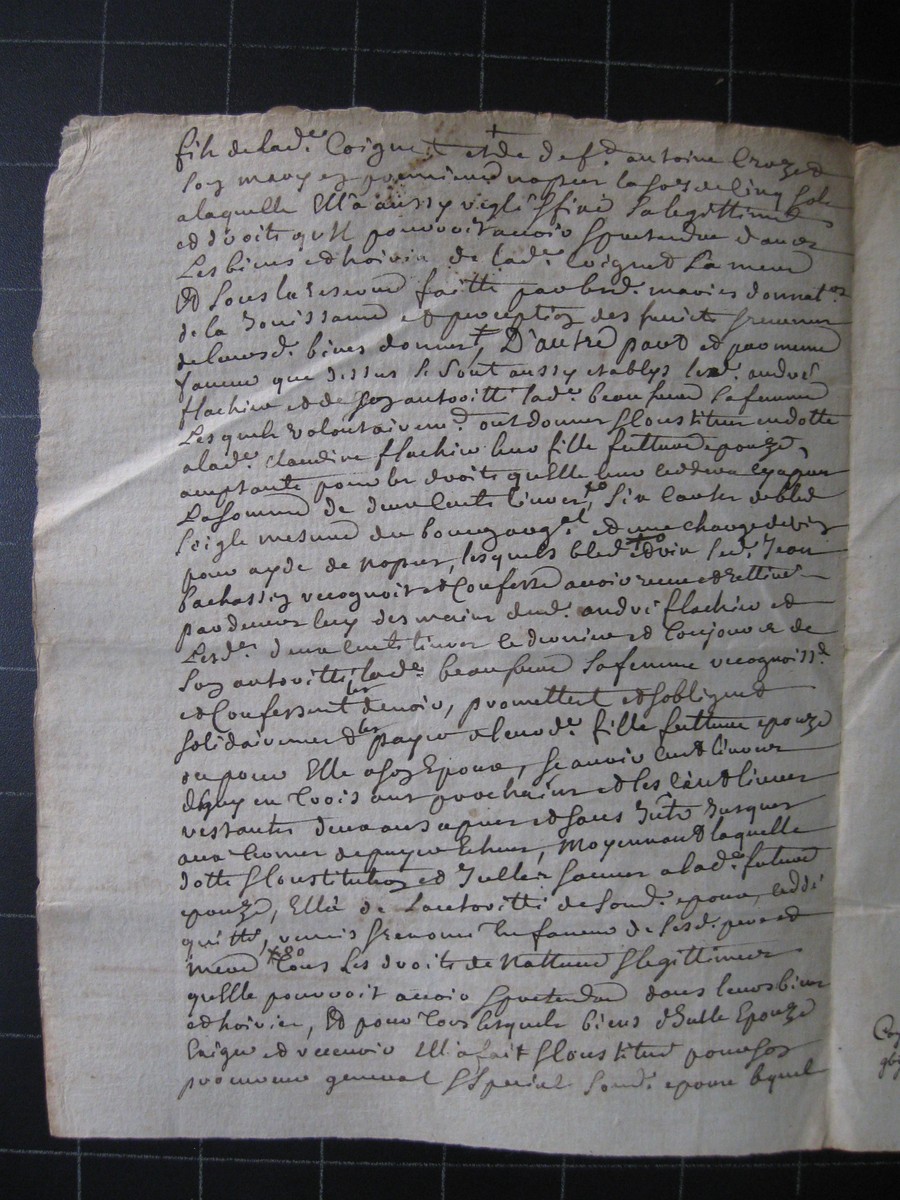 fils de lad.e Coignet et de def.t antoine Croze
son mary en premieres nopces la so.e de cinq sols
a laquelle Ell'a aussy regllé & finé sa legittime
et droits qu'Il pouvroit avoir & pretendre d'ans
Les biens et hoirie de lad.e Coignet sa mere
Et sous la reserve faitte par lesd. maries donnat.rs
de la Jouissance et perception des fruicts & revenus
de leursd. biens donnes, D'autre part et par meme
faveur que dessus se sont aussy etablys led. andré
flachier et de son autoritté lad.e beau sa femme
Lesquels volontairem.t ont donner & Constituer en dotte
a lad.e Claudine flachier leur fille future epouze,
acceptante pour les droits qu'elle leur cedera cy apres
La somme de deux Cents Livres, six de bled
seigle mesure du bourg et une charge de vin
pour ayde de nopces, lesquels bled et vin led. Jean
pachassin recognoit et Confesse avoir receu et rettiré
par devers luy des mains dud. andré flachier et
Lesd. deux Cents Livres led dernier et toujours de
son autoritté lad.e beau sa femme recognoiss.t
et Confessent les devoir, promettent et s'obligent
solidairement les payer a leurd.e fille future epouze
ou pour Elle a son Epoux, scavoir Cent Livres
d'huy en trois ans prochains et les Cent Livres
restantes deux ans apres et sans Jusques
aux termes de payer Echeus, Moyennant laquelle
dotte & Constitution et Icelles a lad.e future
epouze, Elle de L'autoritté de sond. epoux, a cedé
quitté, remis & renoncé En faveur de sesd. pere et
mere tous Les droits de Natture & legittimes
qu'elle pouvoit avoir & pretendre dans leurs biens
et hoiries, Et pour tous lesquels biens d'Icelle Epouze
Exiger et recevoir Ell'a fait & Constitué pour son
procureur general & special sond. epoux lequel